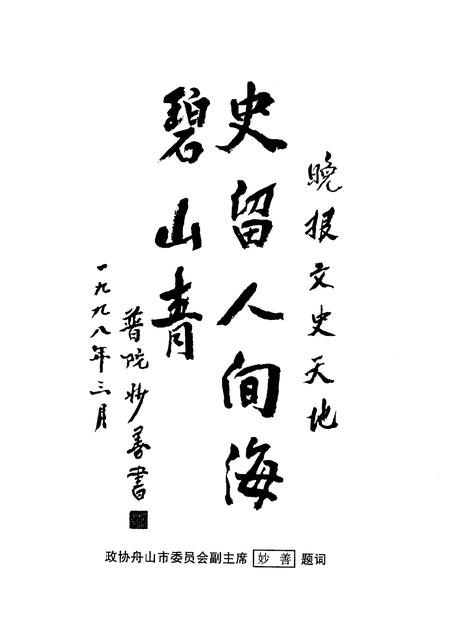 晚报文史天地
史留人间海
碧山青
普陀妙善书
一九九八年三月
政协舟山市委员会副主席 妙善 题词